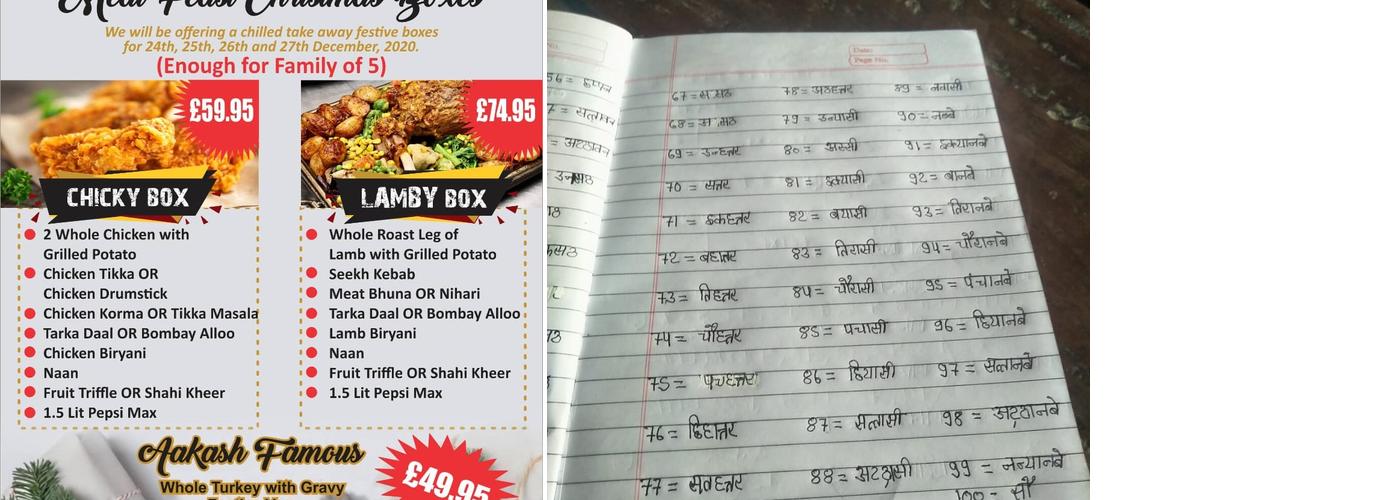 Meat Feast Christmas Boxes
We will be offering a chilled take away festive boxes
for 24th, 25th, 26th and 27th December, 2020.
(Enough for Family of 5)
£59.95
CHICKY BOX
2 Whole Chicken with
Grilled Potato
Chicken Tikka OR
Chicken Drumstick
Chicken Korma OR Tikka Masala
Tarka Daal OR Bombay Alloo
Chicken Biryani
Naan
Fruit Triffle OR Shahi Kheer
1.5 Lit Pepsi Max
£74.95
LAMBY BOX
Whole Roast Leg of
Lamb with Grilled Potato
Seekh Kebab
Meat Bhuna OR Nihari
Tarka Daal OR Bombay Alloo
Lamb Biryani
Naan
Fruit Triffle OR Shahi Kheer
1.5 Lit Pepsi Max
Aakash Famous
Whole Turkey with Gravy
£49.95
No.
56 = छप्पन
7 = सत्तावन
Date:
Page No.
67 =
68 =
69 = उनहत्तर
70 = सत्तर
71 = इकहत्तर
72 = बहात्तर
73 = तिहत्तर
74 = चौहत्तर
75 = पचहत्तर
76 = छिहात्तर
77 = सतहत्तर
78 = अठहत्तर
79 = उन्यासी
80 = अस्सी
81 = इक्यासी
82 = बयासी
83 = तिरासी
84 = चौरासी
85 = पचासी
86 = छियासी
87 = सत्तासी
88 = अटठासी
89 = नवासी
90 = नब्बे
91 = इक्यानबे
92 = बानबे
93 = तिरानबे
94 = चौरानबे
95 = पंचानबे
96 = छियानबे
97 = सत्तानबे
98 = अट्ठानबे
99 = नन्यानबे
100 = सौ